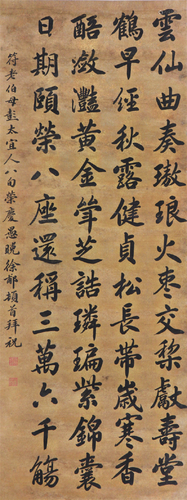 雲仙曲奏璈琅火棗交棃獻壽堂
鶴早經秋露健貞松長帶歲寒香
醅瀲灩黃金聳芝誥璘㻞紫錦囊
日期頤榮八座還稱三萬六千觴
符老伯母彭太宜人八旬榮慶愚晚徐郙頓首拜祝